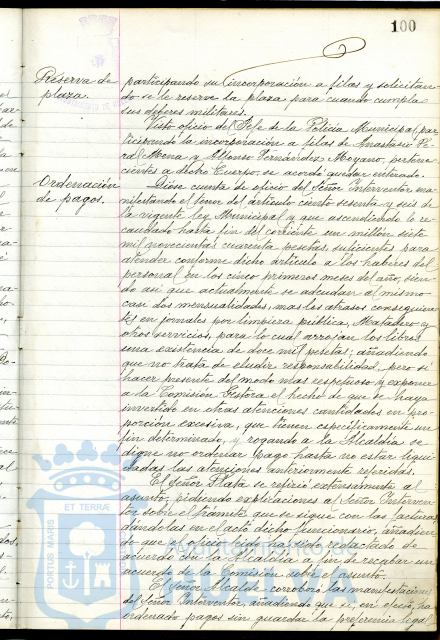 100
Reserva de
plaza.
participando su incorporación a filas y solicitan-
do se le reserve la plaza para cuando cumpla
sus deberes militares.
Visto oficio del Jefe de la Policía Municipal par-
ticipando la incorporación a filas de Anastasio
Mena y Alfonso Fernández Moyano, pertene-
cientes a dicho Cuerpo, se acordó quedar enterado.
Ordenación
de pagos.
Dióse cuenta de oficio del Señor Interventor ma-
nifestando el tenor del artículo ciento sesenta y seis de
la vigente ley Municipal y que ascendiendo lo re-
caudado hasta fin del corriente un millón siete
mil novecientas cuarenta pesetas, suficientes para
atender conforme dicho artículo a los haberes del
personal en los cinco primeros meses del año, sien-
do así que actualmente se adeudan al mismo
casi dos mensualidades, mas los atrasos consiguien-
tes en jornales por limpieza pública, Matadero y
otros servicios, para lo cual arrojan los libros
una existencia de doce mil pesetas; añadiendo
que no trata de eludir responsabilidad, pero si
hacer presente del modo mas respetuoso y expone
a la Comisión Gestora el hecho de que se haya
invertido en otras atenciones cantidades en pro-
porción excesiva, que tienen específicamente un
fin determinado, y rogando a la Alcaldía se
digne no ordenar pago hasta no estar liqui-
dadas las atenciones anteriormente referidas.
El Señor Plata se refirió extensamente al
asunto, pidiendo explicaciones al Señor Interven-
tor sobre el trámite que se sigue con las facturas
dándolas en el acto dicho funcionario, añadien-
do que el oficio leido ha sido redactado de
acuerdo con la Alcaldía a fin de recabar un
acuerdo de la Comisión sobre el asunto.
El Señor Alcalde corrobora las manifestaciones
del Señor Interventor, añadiendo que si, en efecto, ha
ordenado pagos sin guardar la preferencia legal
PORTUS MARIS ET TERRÆ
Ayuntamiento de